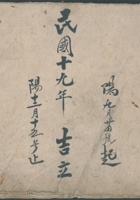 陽九月廿日起
民國十九年 吉立
陽十二月十五号止